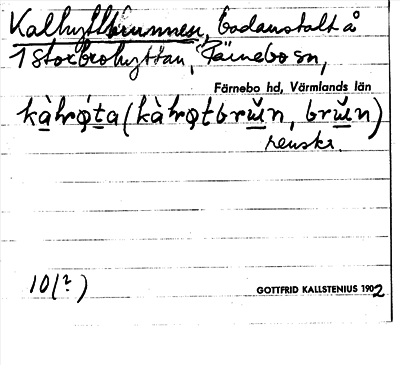 Kalhyttbrunnen, badanstalt å
1 Storbrohyttan, Färnebo sn,
Färnebo hd, Värmlands län
kàhrǫ́ta (kàhrǫtbrǔn, brǔn)
renskr.
10(?)
GOTTFRID KALLSTENIUS 1902